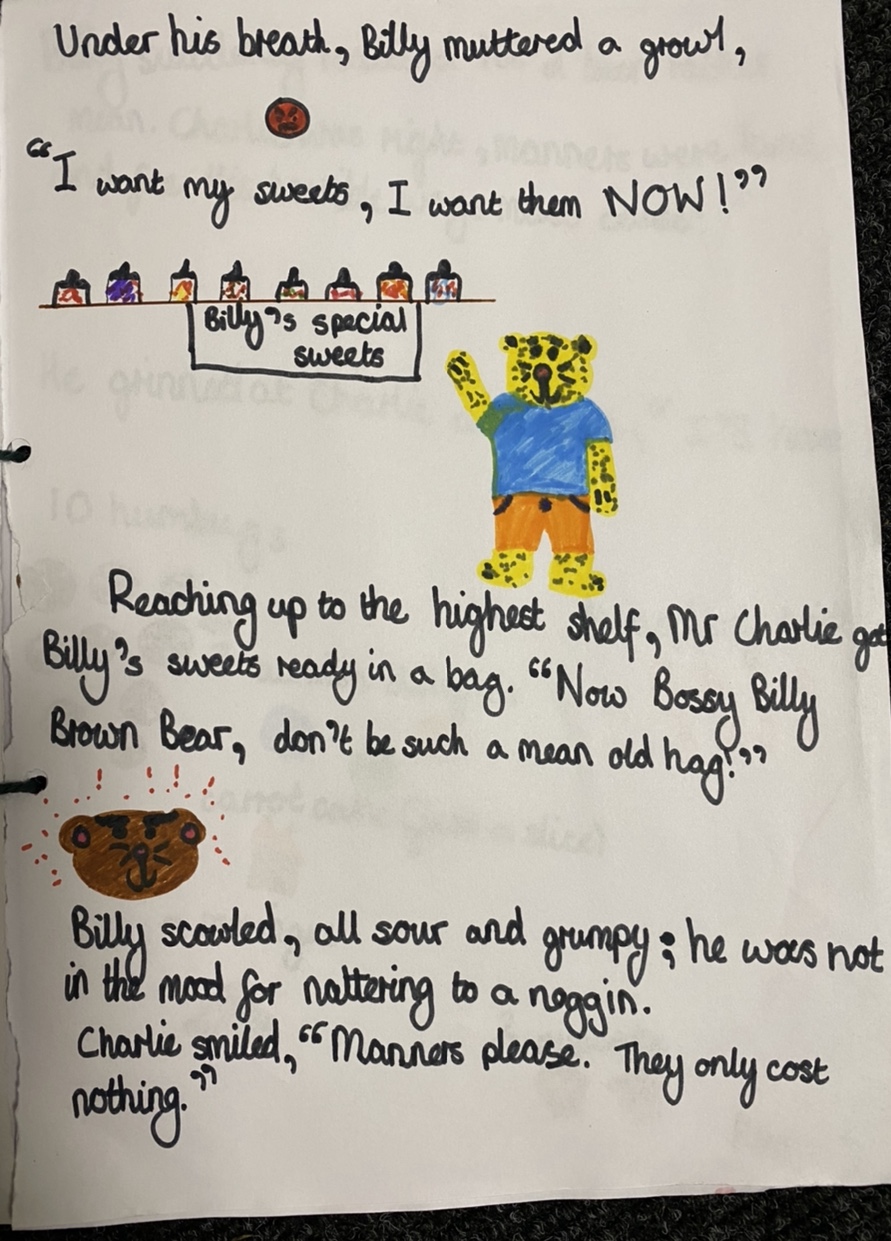 Under his breath, Billy muttered a growl,
“I want my sweets, I want them NOW!”
Billy's special
sweets
Reaching up to the highest shelf, Mr Charlie got
Billy's sweets ready in a bag. “Now Bossy Billy
Brown Bear, don't be such a mean old hag!”
Billy scowled, all sour and grumpy; he was not
in the mood for nattering to a noggin.
Charlie smiled, “Manners please. They only cost
nothing.”